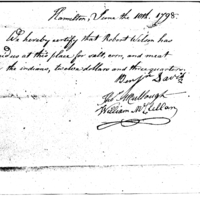 Hamilton, June the 10th. 1798.
We hereby certify that Robert Wilson has
paid us at this place for salt, corn, and meat
for the indians, twelve dollars and three quarters.
Benjn Davis
Mullough
William McClellan